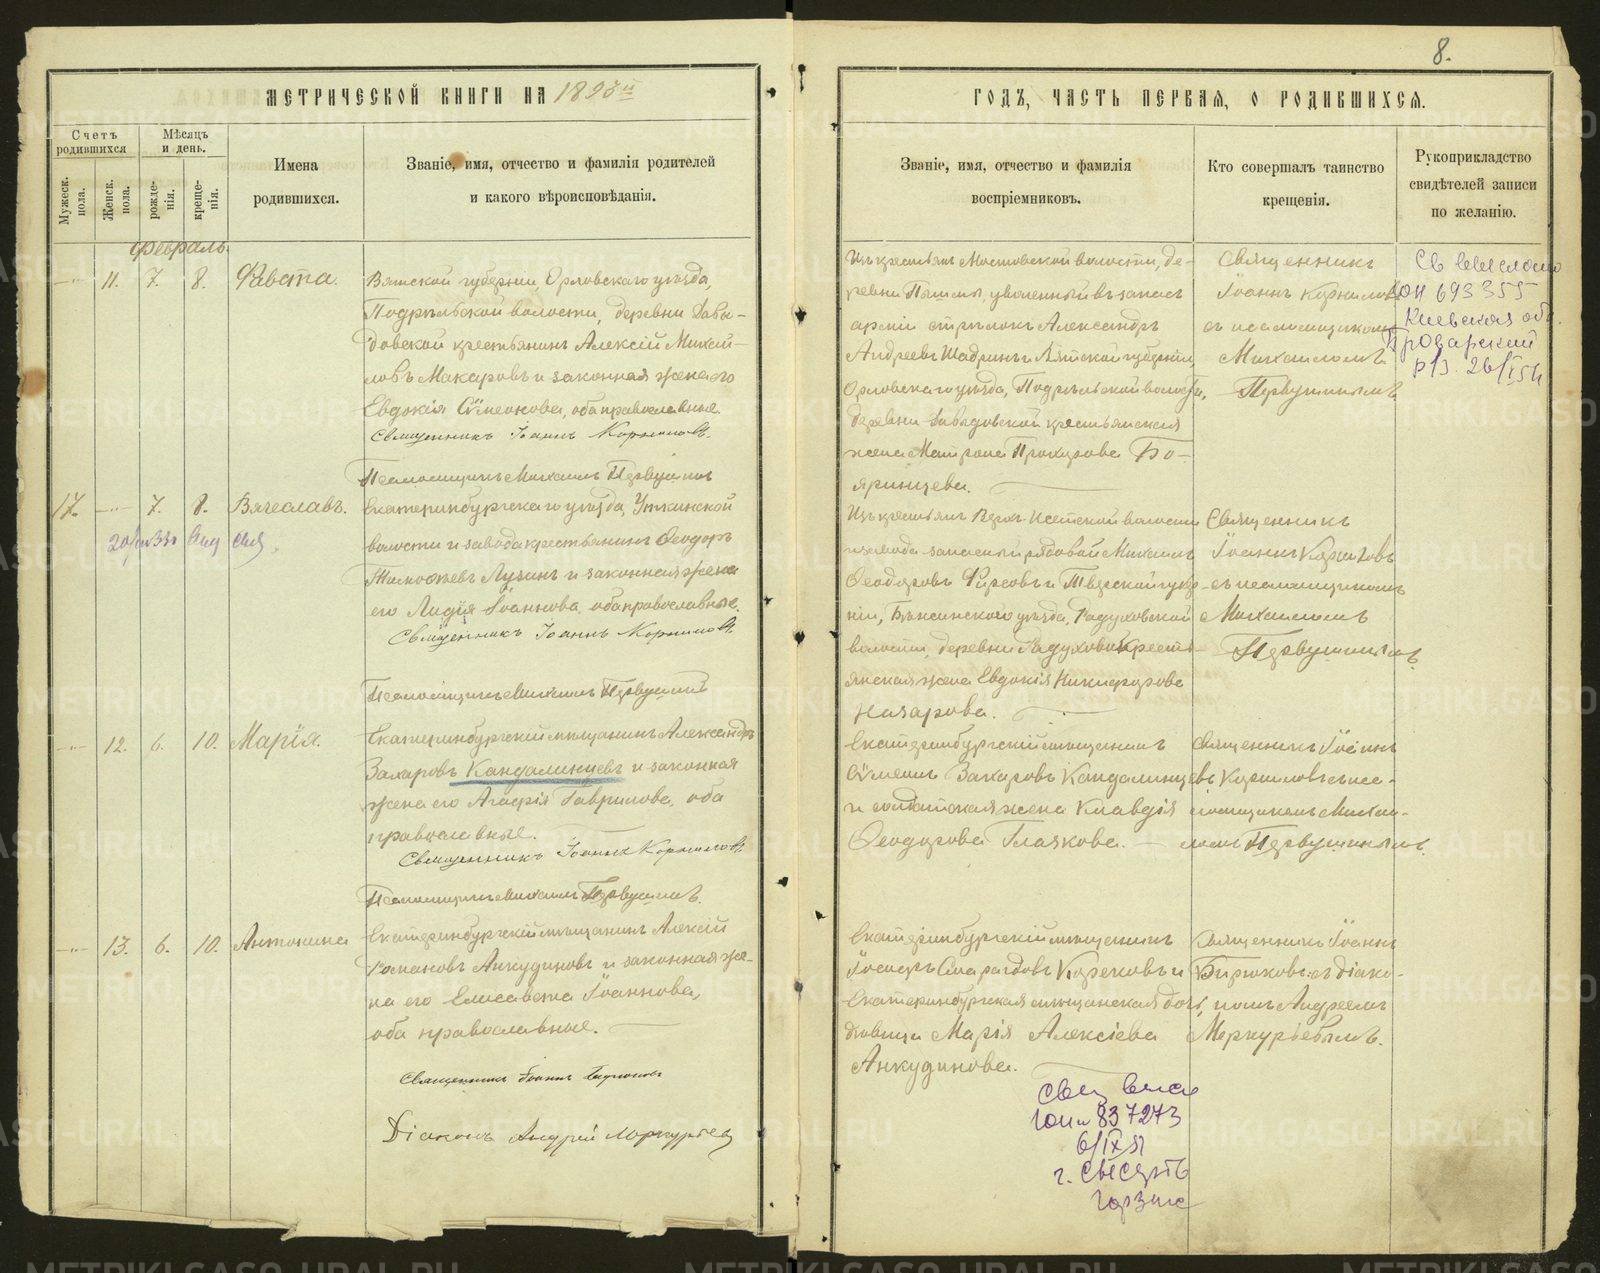 МЕТРИЧЕСКОЙ КНИГИ НА 1895й
Счетъ родившихся
Мѣсяцъ и день.
Мужеск. пола.
Женск. пола.
рожденія.
крещенія.
Имена родившихся.
Званіе, имя, отчество и фамилія родителей
и какого вѣроисповѣданія.
Февраль.
11. 7. 8. Фавста. Вятской губерніи, Орловскаго уѣзда,
Подрѣльской волости, деревни Давы-
довской крестьянинъ Алексій Михай-
ловъ Макаровъ и законная жена его
Евдокія Сѵмеонова, оба православные.
Священникъ Іоаннъ Корниловъ.
Псаломщикъ Михаилъ Первушинъ
17. 7. 8. Вячеславъ. Екатеринбургскаго уѣзда, Уткинской
волости и завода крестьянинъ Ѳеодоръ
Тимоѳеевъ Лузинъ и законная жена
его Лидія Іоаннова, оба православные.
Священникъ Іоаннъ Корниловъ.
Псаломщикъ Михаилъ Первушинъ
12. 6. 10. Марія. Екатеринбургскій мѣщанинъ Александръ
Захаровъ Кандалинцевъ и законная
жена его Агафія Гаврилова, оба
православные.
Священникъ Іоаннъ Корниловъ.
Псаломщикъ Михаилъ Первушинъ.
13. 6. 10. Антонина Екатеринбургскій мѣщанинъ Алексій
Романовъ Анкудиновъ и законная же-
на его Елисавета Іоаннова,
оба православные.
Священникъ Іоаннъ Бирюковъ
Діаконъ Андрей Меркурьевъ
8.
ГОДЪ, ЧАСТЬ ПЕРВАЯ, О РОДИВШИХСЯ.
Званіе, имя, отчество и фамилія
воспріемниковъ.
Кто совершалъ таинство
крещенія.
Рукоприкладство
свидѣтелей записи
по желанію.
Изъ крестьянъ Мостовской волости, де-
ревни Пышмы, уволенный въ запасъ
арміи стрѣлокъ Александръ
Андреевъ Шадринъ и Вятской губерніи,
Орловскаго уѣзда, Подрѣльской волости,
деревни Давыдовской крестьянская
жена Матрона Прохорова Бо-
яринцева.
Священникъ
Іоаннъ Корниловъ
съ псаломщикомъ
Михаиломъ
Первушинымъ.
693355
Киевская обл.
Броварский
Изъ крестьянъ Верхъ-Исетской волости
и завода запасный рядовой Михаилъ
Ѳеодоровъ Фирсовъ и Тверской губер-
ніи,
уѣзда, Радуховской
волости, деревни Радухова кресть-
янская жена Евдокія Никифорова
Назарова.
Священникъ
Іоаннъ Корниловъ
съ псаломщикомъ
Михаиломъ
Первушинымъ.
Екатеринбургскій мѣщанинъ
Сѵмеонъ Захаровъ Кандалинцевъ
и солдатская жена Клавдія
Ѳеодорова Глазкова.
Священникъ Іоаннъ
Корниловъ съ пса-
ломщикомъ Михаи-
ломъ Первушинымъ.
Екатеринбургскій мѣщанинъ
Іосифъ Смарагдовъ Корековъ и
Екатеринбургская мѣщанская дочь,
дѣвица Марія Алексіева
Анкудинова.
Священникъ Іоаннъ
Бирюковъ съ діако-
номъ Андреемъ
Меркурьевымъ.
837273
6/IX 51
г. Сысерть
METRIKI.GASO-URAL.RU